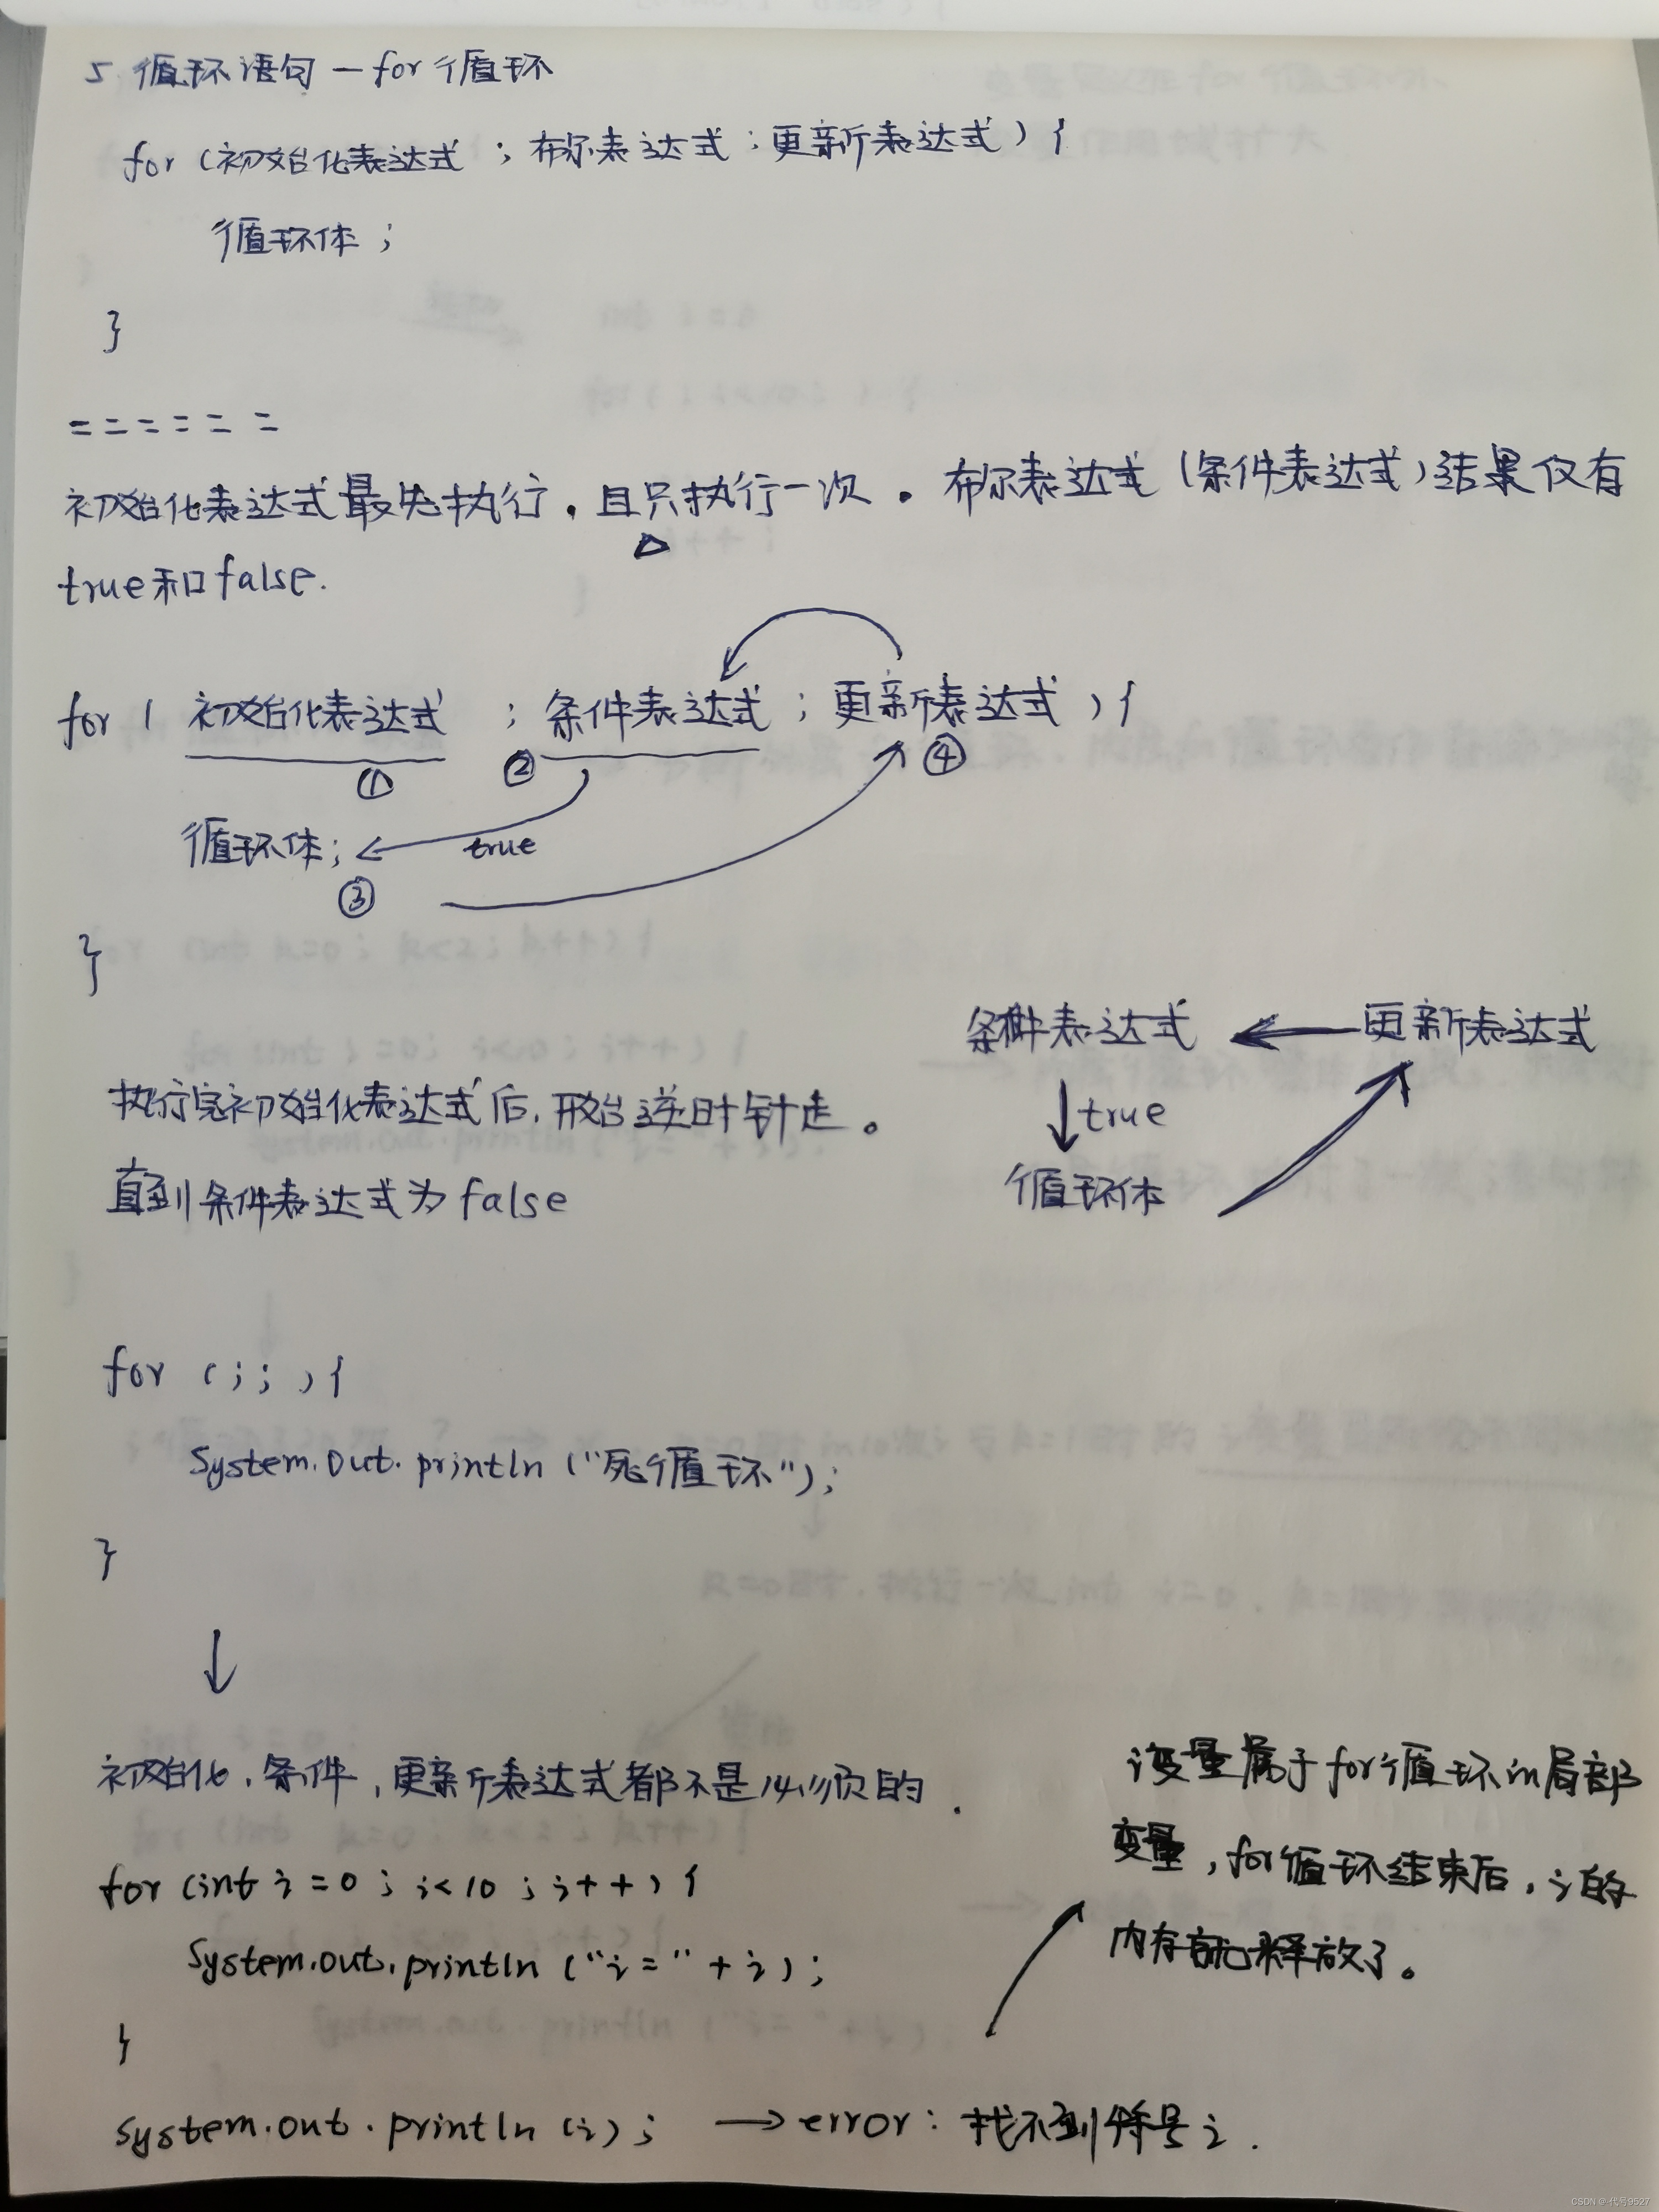 5 循环语句 — for 循环
for (初始化表达式 ; 布尔表达式 ; 更新表达式) {
循环体 ;
}
= = = = = =
初始化表达式最先执行，且只执行一次。布尔表达式 (条件表达式) 结果仅有
true和false.
for ( 初始化表达式 ; 条件表达式 ; 更新表达式 ) {
① ② ④
循环体; true
③
}
条件表达式 ← 更新表达式
执行完初始化表达式后, 开始逆时针走。
↓ true
直到条件表达式为 false
循环体
for ( ; ; ) {
System.out.println ("死循环");
}
↓
初始化, 条件, 更新表达式都不是必须的.
for (int i = 0 ; i < 10 ; i + + ) {
System.out.println ("i = " + i) ;
}
i变量属于for循环的局部
变量, for循环结束后, i的
内存就释放了。
System.out.println (i) ; → error : 找不到符号 i .
CSDN @代号9527